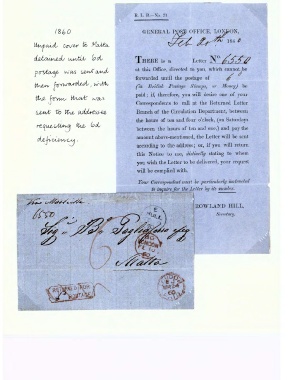 1860
Unpaid cover to Malta
detained until 6d
postage was sent and
then forwarded, with
the form that was
sent to the addressee
requesting the 6d
deficiency.
R. L. B—No. 21.
GENERAL POST OFFICE, LONDON,
Feb 20th 1860
THERE is a Letter No 6550
at this Office, directed to you, which cannot be
forwarded until the postage of 6
(in British Postage Stamps, or Money) be
paid; if therefore, you will desire one of your
Correspondents to call at the Returned Letter
Branch of the Circulation Department, between
the hours of ten and four o'clock, (on Saturdays
between the hours of ten and one,) and pay the
amount above-mentioned, the Letter will be sent
according to the address; or, if you will return
this Notice to me, distinctly stating to whom
you wish the Letter to be delivered, your request
will be complied with.
Your Correspondent must be particularly instructed
to inquire for the Letter by its number.
ROWLAND HILL,
Secretary.
via Marseille
6550
6
Malta